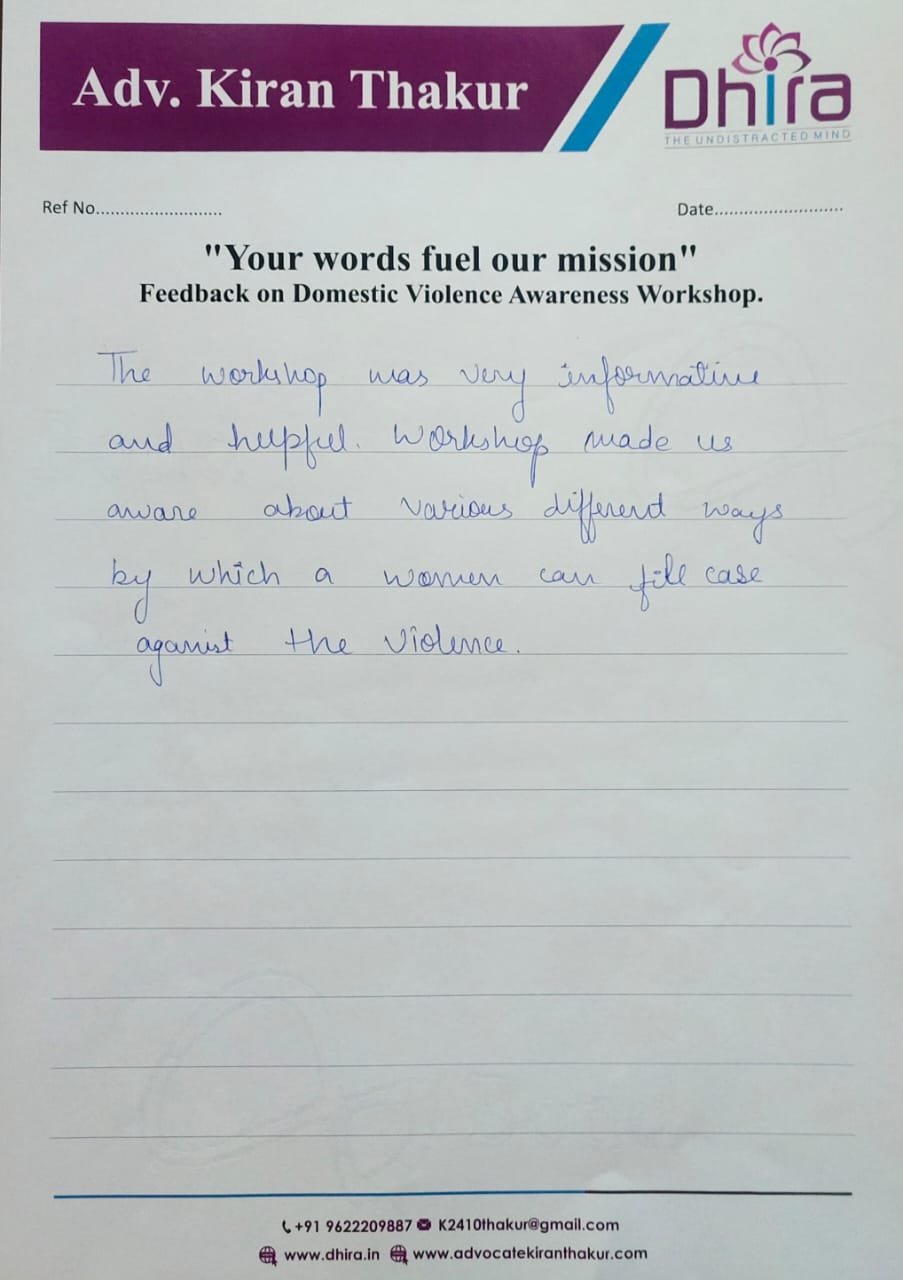 Adv. Kiran Thakur
Dhira
THE UNDISTRACTED MIND
Ref No..........................
Date..........................
"Your words fuel our mission"
Feedback on Domestic Violence Awareness Workshop.
The workshop was very informative
and helpful. Workshop made us
aware about various different ways
by which a women can fill case
aganist the violence.
+91 9622209887 K2410thakur@gmail.com
www.dhira.in www.advocatekiranthakur.com